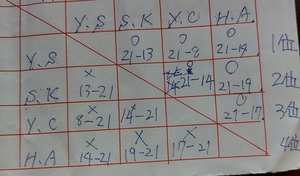 Y.S S.K Y.C H.A.
Y.S ○ 21-13 ○ 21-8 ○ 21-14 1位
S.K × 13-21 ○ 21-14 ○ 21-19 2位
Y.C × 8-21 × 14-21 ○ 21-17 3位
H.A × 14-21 × 19-21 × 17-21 4位